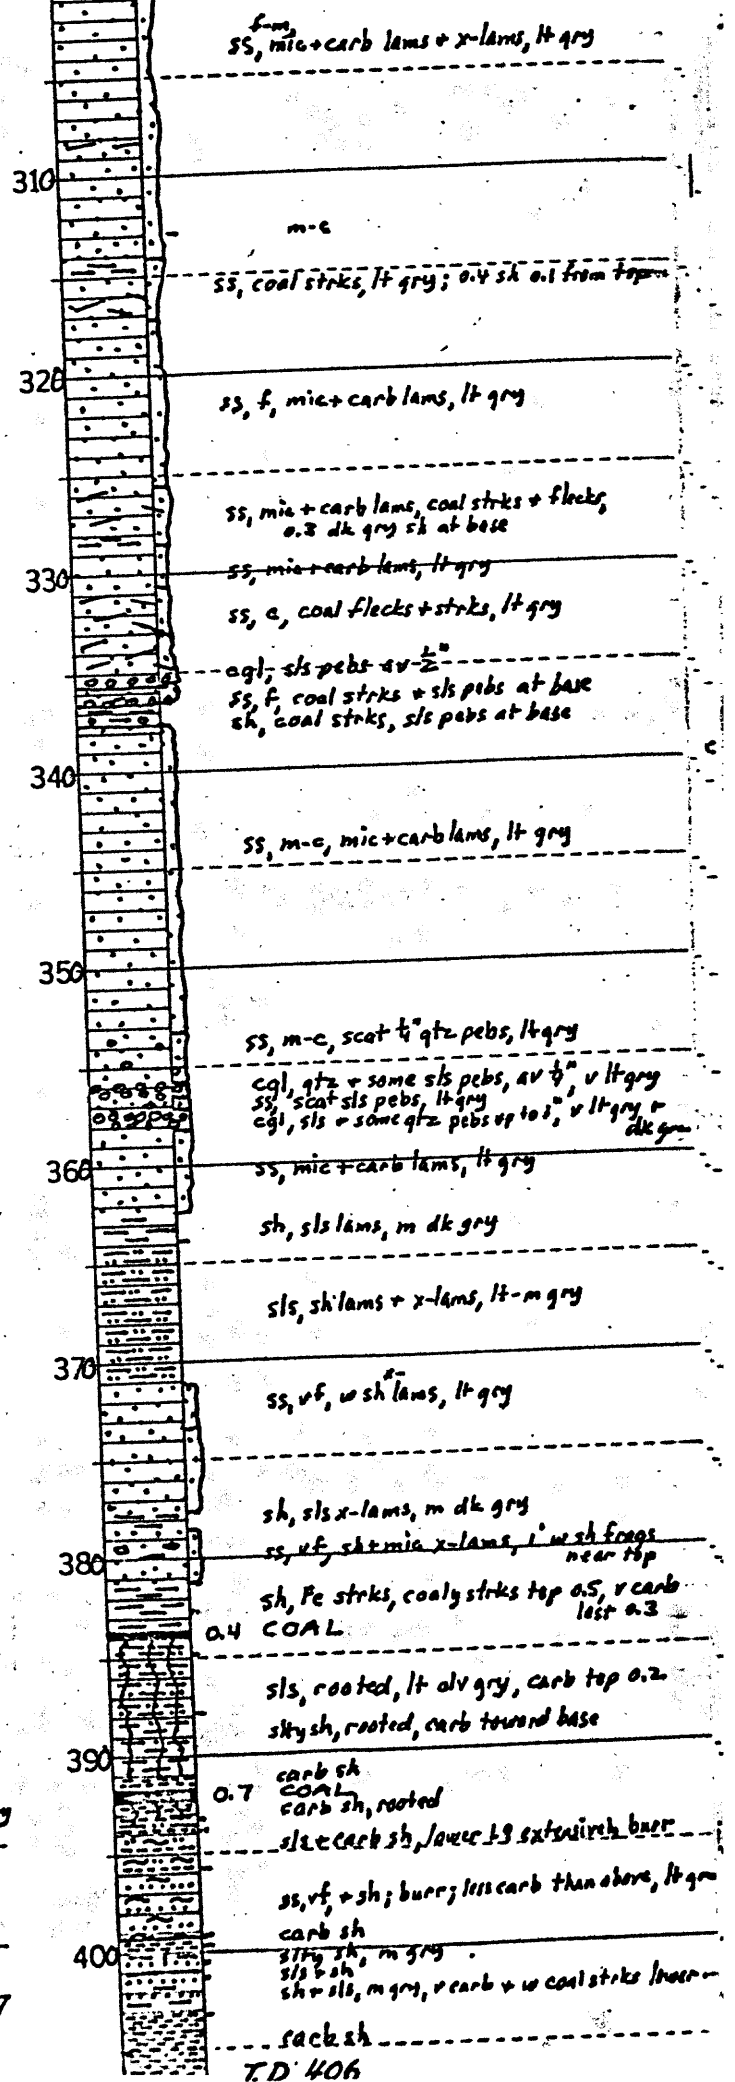 f-m,
ss, mic+carb lams + x-lams, lt gry
310
m-c
ss, coal strks, lt gry; 0.4 sh 0.1 from top
320
ss, f, mic+carb lams, lt gry
ss, mic + carb lams, coal strks + flecks,
0.3 dk gry sh at base
330
ss, mic+carb lams, lt gry
ss, c, coal flecks+strks, lt gry
cgl, sls pebs av ½"
ss, f, coal strks + sls pebs at base
sh, coal strks, sls pebs at base
c
340
ss, m-c, mic+carb lams, lt gry
350
ss, m-c, scat ¼" qtz pebs, lt gry
cgl, qtz + some sls pebs, av ¼", v lt gry
ss, scat sls pebs, lt gry
cgl, sls + some qtz pebs up to 3", v lt gry +
dk
360
ss, mic+carb lams, lt gry
sh, sls lams, m dk gry
sls, sh lams + x-lams, lt-m gry
370
x-
ss, vf, w sh lams, lt gry
sh, sls x-lams, m dk gry
380
ss, vf, sh+mic x-lams, 1' w sh frags
near top
sh, Fe strks, coaly strks top 0.5, v carb
last 0.3
0.4 COAL
sls, rooted, lt olv gry, carb top 0.2
slty sh, rooted, carb toward base
390
carb sh
0.7 COAL
carb sh, rooted
sls + carb sh, lower 1.9 extensively burr
ss, vf, + sh; burr; less carb than above, lt
carb sh
400
slty sh, m gry
sls + sh
sh + sls, m gry, v carb + w coal strks lower
carb sh
T.D. 406